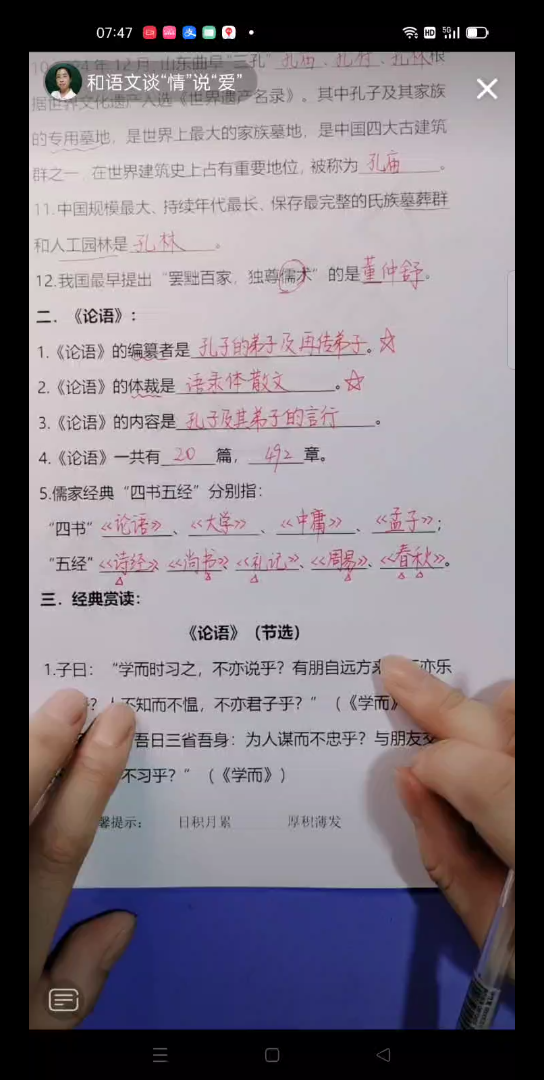 07:47
和语文谈“情”说“爱”
年 12 月，山东曲阜“三孔”孔庙、孔府、孔林根
据世界文化遗产入选《世界遗产名录》。其中孔子及其家族
的专用墓地，是世界上最大的家族墓地，是中国四大古建筑
群之一，在世界建筑史上占有重要地位，被称为 孔庙 。
11.中国规模最大、持续年代最长、保存最完整的氏族墓葬群
和人工园林是 孔林 。
12.我国最早提出“罢黜百家，独尊儒术”的是董仲舒。
二．《论语》：
1.《论语》的编纂者是 孔子的弟子及再传弟子。☆
2.《论语》的体裁是 语录体散文 。☆
3.《论语》的内容是 孔子及其弟子的言行 。
4.《论语》一共有 20 篇， 492 章。
5.儒家经典“四书五经”分别指：
“四书”《论语》、《大学》、《中庸》、《孟子》；
“五经”《诗经》、《尚书》、《礼记》、《周易》、《春秋》。
三．经典赏读：
《论语》（节选）
1.子曰：“学而时习之，不亦说乎？有朋自远方来 亦乐
？人不知而不愠，不亦君子乎？”（《学而》
吾日三省吾身：为人谋而不忠乎？与朋友交
不习乎？”（《学而》）
馨提示： 日积月累 厚积薄发